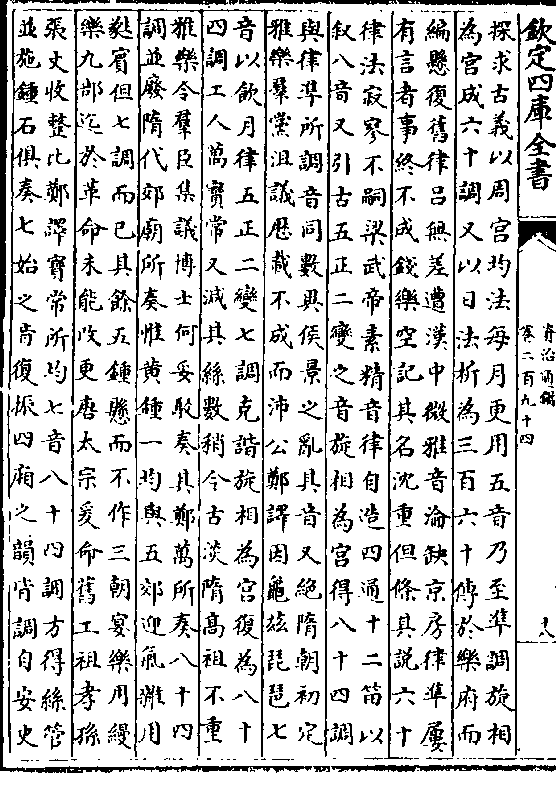 欽定四庫全書
資治通鑑
卷二百九十四
十八
探求古義以周宮均法每月更用五音乃至準調旋相
為宮成六十調又以日法析為三百六十傳於樂府而
編懸復舊律呂無差遭漢中微雅音淪缺京房律準屢
有言者事終不成錢樂空記其名沈重但條其說六十
律法寂寥不嗣梁武帝素精音律自造四通十二笛以
叙八音又引古五正二變之音旋相為宮得八十四調
與律準所調音同數異侯景之亂其音又絕隋朝初定
雅樂羣黨沮議歷載不成而沛公鄭譯因龜兹琵琶七
音以飲月律五正二變七調克諧旋相為宮復為八十
四調工人萬寶常又減其絲數稍令古淡隋高祖不重
雅樂令羣臣集議博士何妥駁奏其鄭萬所奏八十四
調並廢隋代郊廟所奏惟黄鍾一均與五郊迎氣雜用
㽔賓但七調而已其餘五鍾懸而不作三朝宴樂用縵
樂九部迄於革命未能改更唐太宗爰命舊工祖孝孫
張文收整比鄭譯寶常所均七音八十四調方得絲管
並施鍾石俱奏七始之音復振四廂之韻皆調自安史